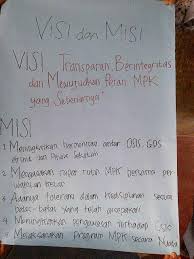 VISI dan MISI
VISI "Transparan, Berintegritas
dan Mewujudkan Peran MPK
yang Sebenarnya"
MISI
1. Meningkatkan harmonisasi antar OSIS, GDS,
dan Pihak Sekolah
2. Mengadakan rapat rutin MPK bersama per
3. Adanya toleran dalam kedisiplinan secara
batas-batas yang telah disepakati
4. Meningkatkan pengawasan terhadap OSIS
5. Melaksanakan program MPK secara Nyata